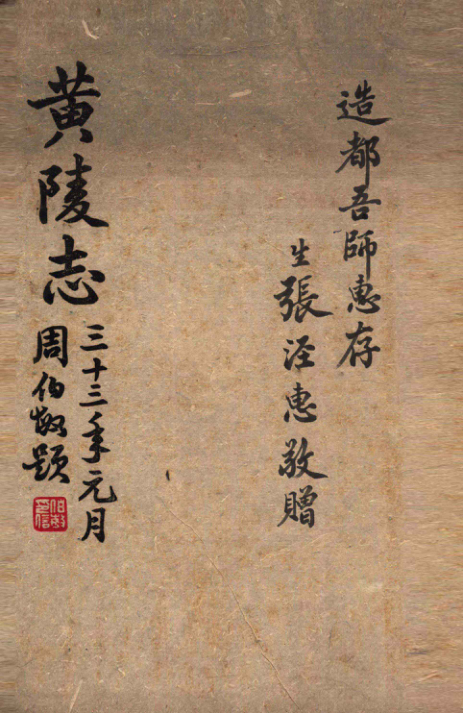 造都吾師惠存
生張涇惠敬贈
黄陵志
三十三年元月
周伯敏題
伯敏